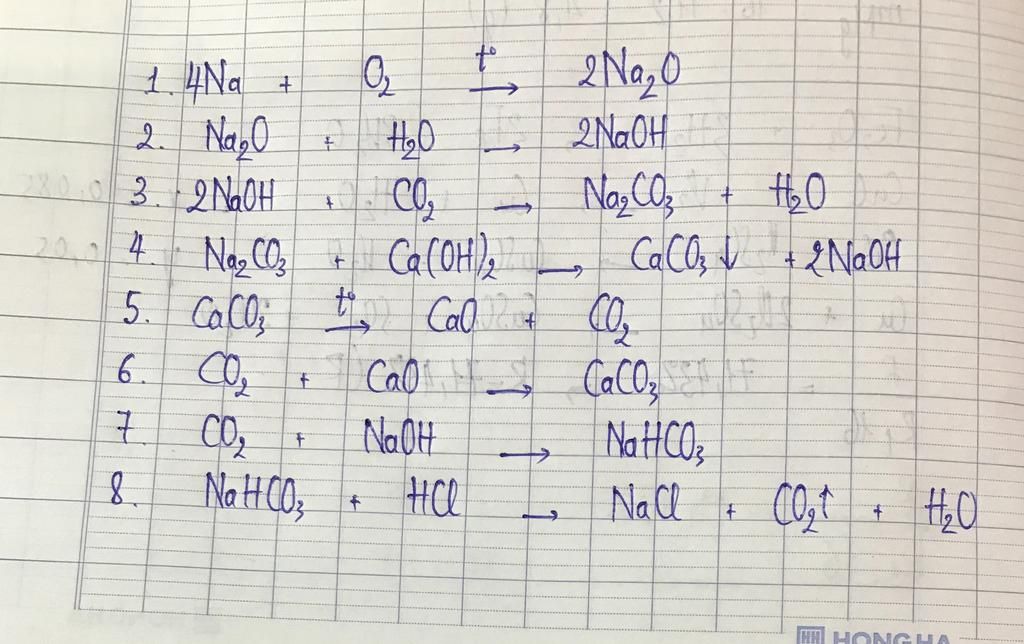 1. 4Na + O₂ t° → 2Na₂O
2. Na₂O + H₂O → 2NaOH
3. 2NaOH + CO₂ → Na₂CO₃ + H₂O
4. Na₂CO₃ + Ca(OH)₂ → CaCO₃↓ + 2NaOH
5. CaCO₃ t° → CaO + CO₂
6. CO₂ + CaO → CaCO₃
7. CO₂ + NaOH → NaHCO₃
8. NaHCO₃ + HCl → NaCl + CO₂↑ + H₂O
HH HONG HA